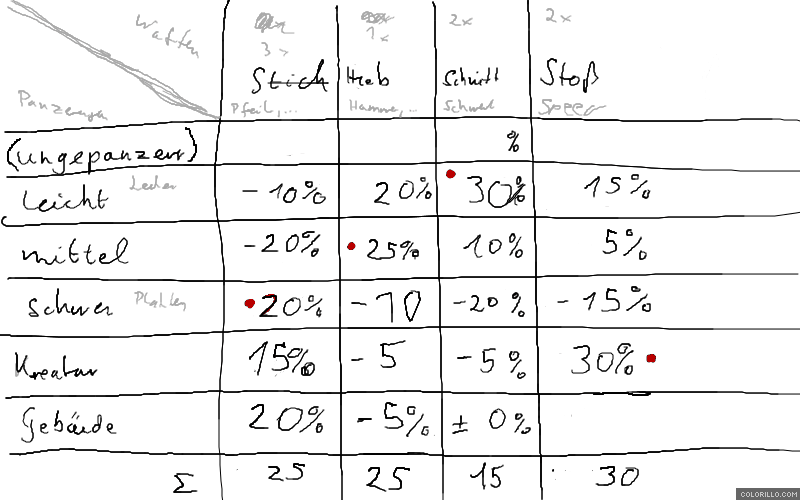 Waffen 3x 1x 2x 2x
Stich Hieb Schnitt Stoß
Panzerung Pfeil,... Hammer,... Schwert Speer
(ungepanzert) %
leicht Leder -10% 20% 30% 15%
mittel -20% 25% 10% 5%
schwer Platten 20% -10 -20% -15%
Kreatur 15% -5 -5% 30%
Gebäude 20% -5% ± 0%
Σ 25 25 15 30
COLORILLO.COM